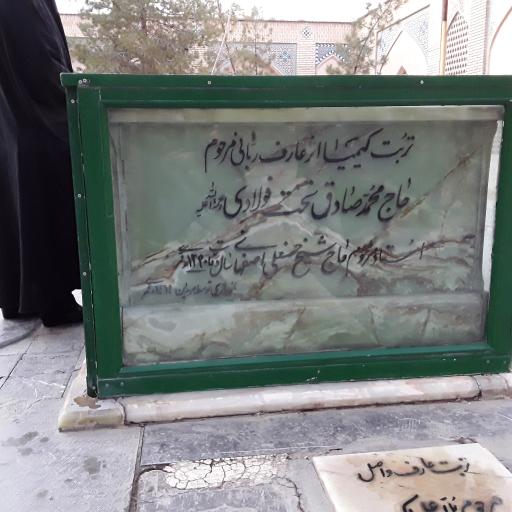 تربت کیمیا اثر عارف ربانی مرحوم
حاج محمد صادق تخت فولادی رحمة الله علیه
استاد مرحوم حاج شیخ حسنعلی اصفهانی سال وفات ۱۲۹۰ قمری
تربت عارف واصل
مرحوم بابا